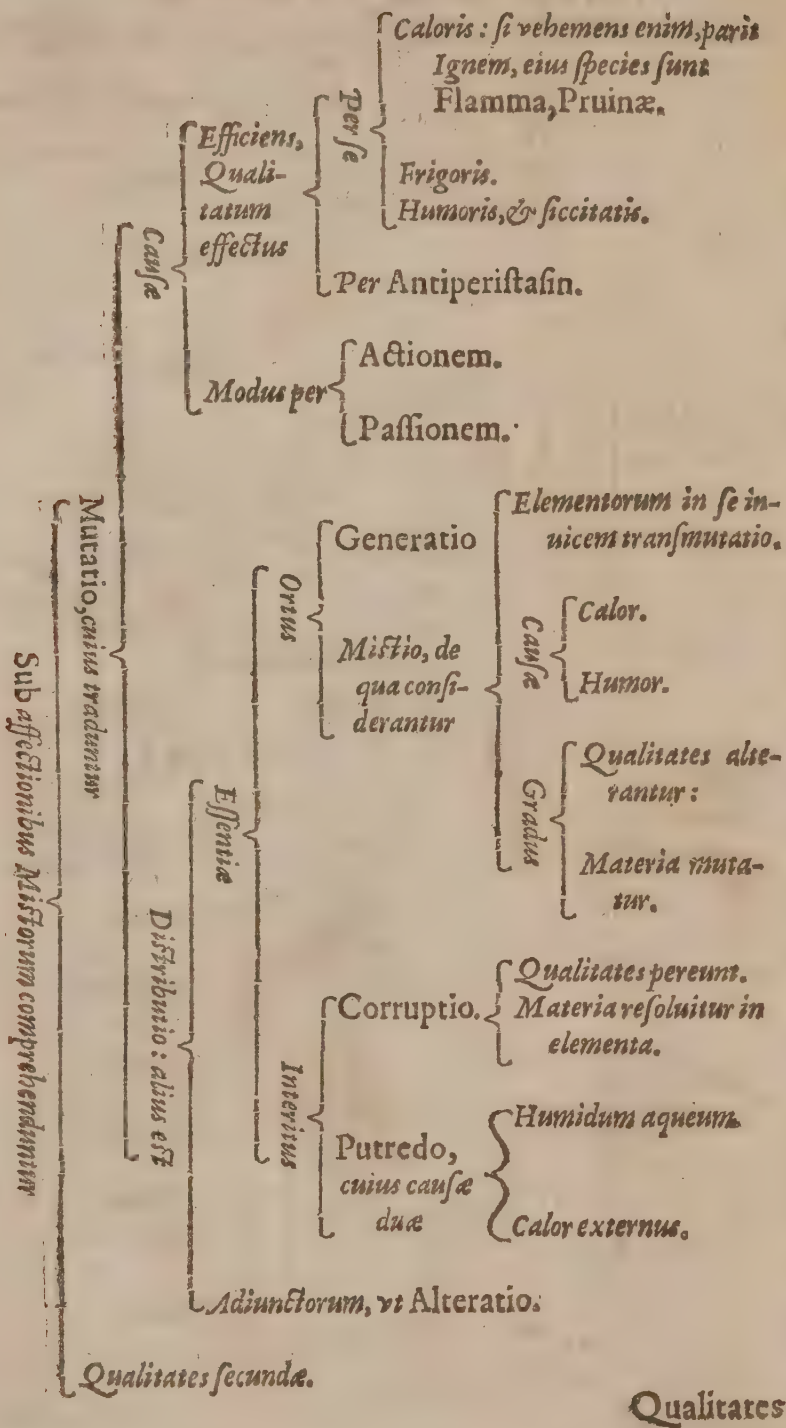 Sub affectionibus Mistorum comprehenduntur
Mutatio, cuius traduntur
Causæ
Efficiens,
Quali-
tatum
effectus
Per se
Caloris : si vehemens enim, parit
Ignem, eius species sunt
Flamma, Pruinæ.
Frigoris.
Humoris, & siccitatis.
Per Antiperistasin.
Modus per
Actionem.
Passionem.
Distributio : alius est
Essentiæ
Ortus
Generatio
Mistio, de
qua consi-
derantur
Elementorum in se in-
uicem transmutatio.
Causæ
Calor.
Humor.
Gradus
Qualitates alte-
rantur :
Materia muta-
tur.
Interitus
Corruptio.
Qualitates pereunt.
Materia resoluitur in
elementa.
Putredo,
cuius causæ
duæ
Humidum aqueum.
Calor externus.
Adiunctorum, vt Alteratio.
Qualitates secundæ.
Qualitates